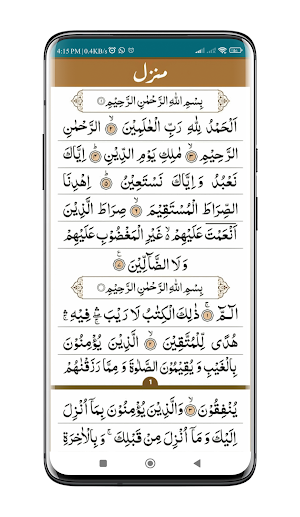 4:15 PM | 0.4KB/s
منزل
بِسْمِ اللهِ الرَّحْمٰنِ الرَّحِيْمِ ۝۱
اَلْحَمْدُ لِلّٰهِ رَبِّ الْعٰلَمِيْنَ ۝۲ الرَّحْمٰنِ
الرَّحِيْمِ ۝۳ مٰلِكِ يَوْمِ الدِّيْنِ ۝۴ اِيَّاكَ
نَعْبُدُ وَاِيَّاكَ نَسْتَعِيْنُ ۝۵ اِهْدِنَا
الصِّرَاطَ الْمُسْتَقِيْمَ ۝۶ صِرَاطَ الَّذِيْنَ
اَنْعَمْتَ عَلَيْهِمْ ۙ غَيْرِ الْمَغْضُوْبِ عَلَيْهِمْ
وَلَا الضَّآلِّيْنَ ۝۷
بِسْمِ اللهِ الرَّحْمٰنِ الرَّحِيْمِ
الٓمّٓ ۝۱ ذٰلِكَ الْكِتٰبُ لَا رَيْبَ ۛ فِيْهِ ۛ
هُدًى لِّلْمُتَّقِيْنَ ۝۲ الَّذِيْنَ يُؤْمِنُوْنَ
بِالْغَيْبِ وَيُقِيْمُوْنَ الصَّلٰوةَ وَمِمَّا رَزَقْنٰهُمْ
1
يُنْفِقُوْنَ ۝۳ وَالَّذِيْنَ يُؤْمِنُوْنَ بِمَآ اُنْزِلَ
اِلَيْكَ وَمَآ اُنْزِلَ مِنْ قَبْلِكَ ۚ وَبِالْاٰخِرَةِ